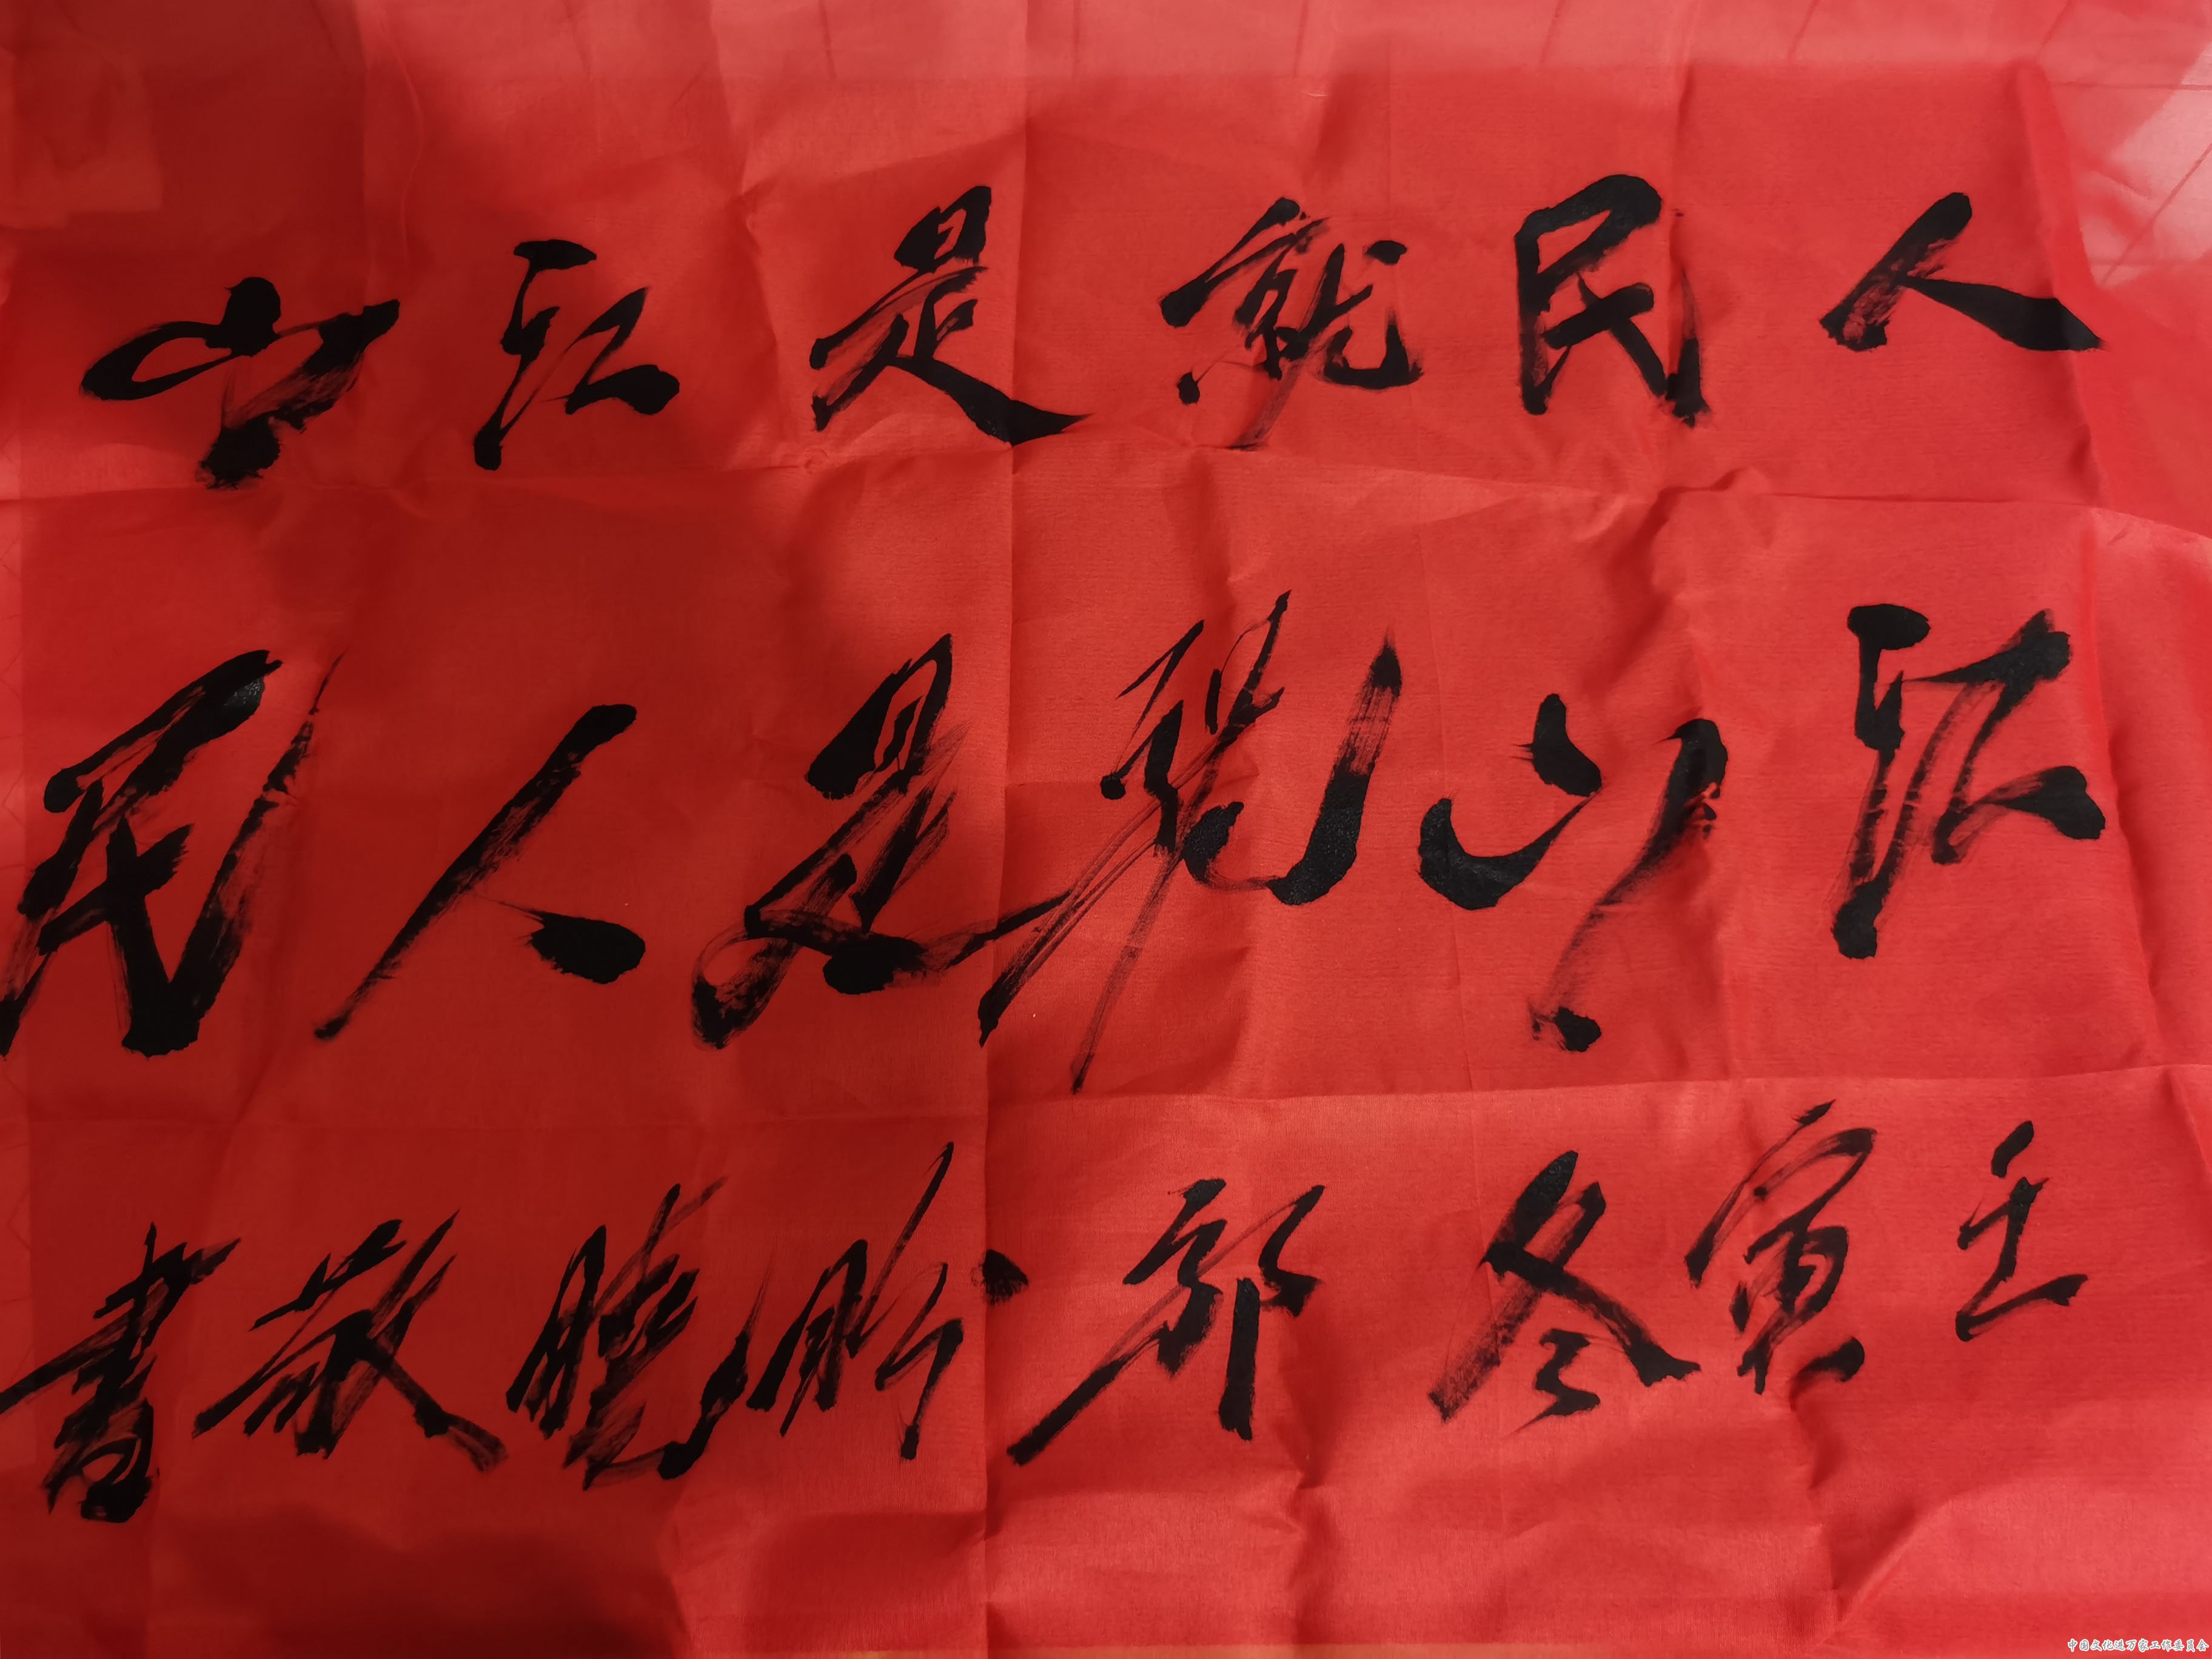 人民就是江山
江山就是人民
壬寅冬 郭 敬書
中国文化进万家工作委员会